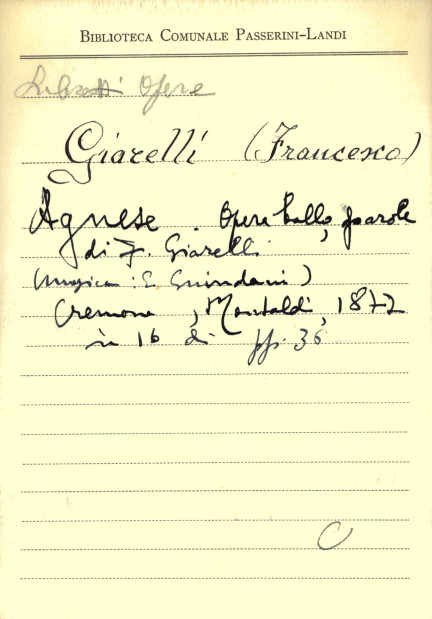 BIBLIOTECA COMUNALE PASSERINI-LANDI
Libretti Opere
Giarelli (Francesco)
Agnese. Opera ballo, parole
di F. Giarelli
(musica: E. Guindani)
Cremona, Montaldi, 1872
in 16 di pp. 36
C